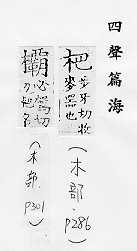 四聲篇海
杷
步牙切收
麥器也
(木部.
P286)
欛
必駕切
刀把名
(木部.
P301)